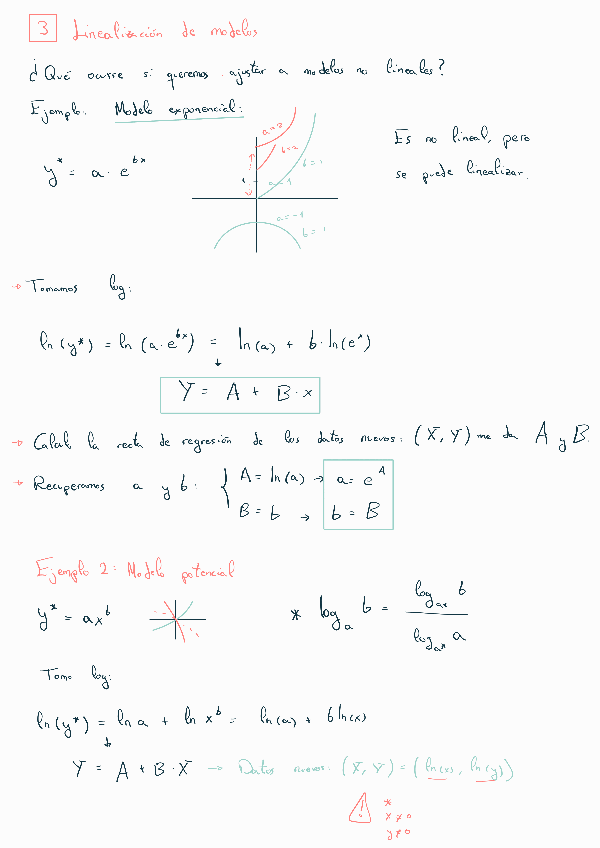 3 Linealización de modelos
¿Qué ocurre si queremos ajustar a modelos no lineales?
Ejemplo: Modelo exponencial:
a=2
b=2
b=1
a=1
a=-1
b=1
y* = a · e^{bx}
Es no lineal, pero
se puede linealizar.
→ Tomamos log:
ln(y*) = ln(a·e^{bx}) = ln(a) + b·ln(e^x)
↓
Y = A + B · x
→ Calcul la recta de regresión de los datos nuevos: (X, Y) me da A y B.
→ Recuperamos a y b: { A = ln(a) → a = e^A
B = b → b = B
Ejemplo 2: Modelo potencial
y* = ax^b
* log_a b = log_{a*} b / log_{a*} a
Tomo log:
ln(y*) = ln a + ln x^b = ln(a) + b ln(x)
↓
Y = A + B · X → Datos nuevos: (X, Y) = (ln(x), ln(y))
! *
x ≠ 0
y ≠ 0